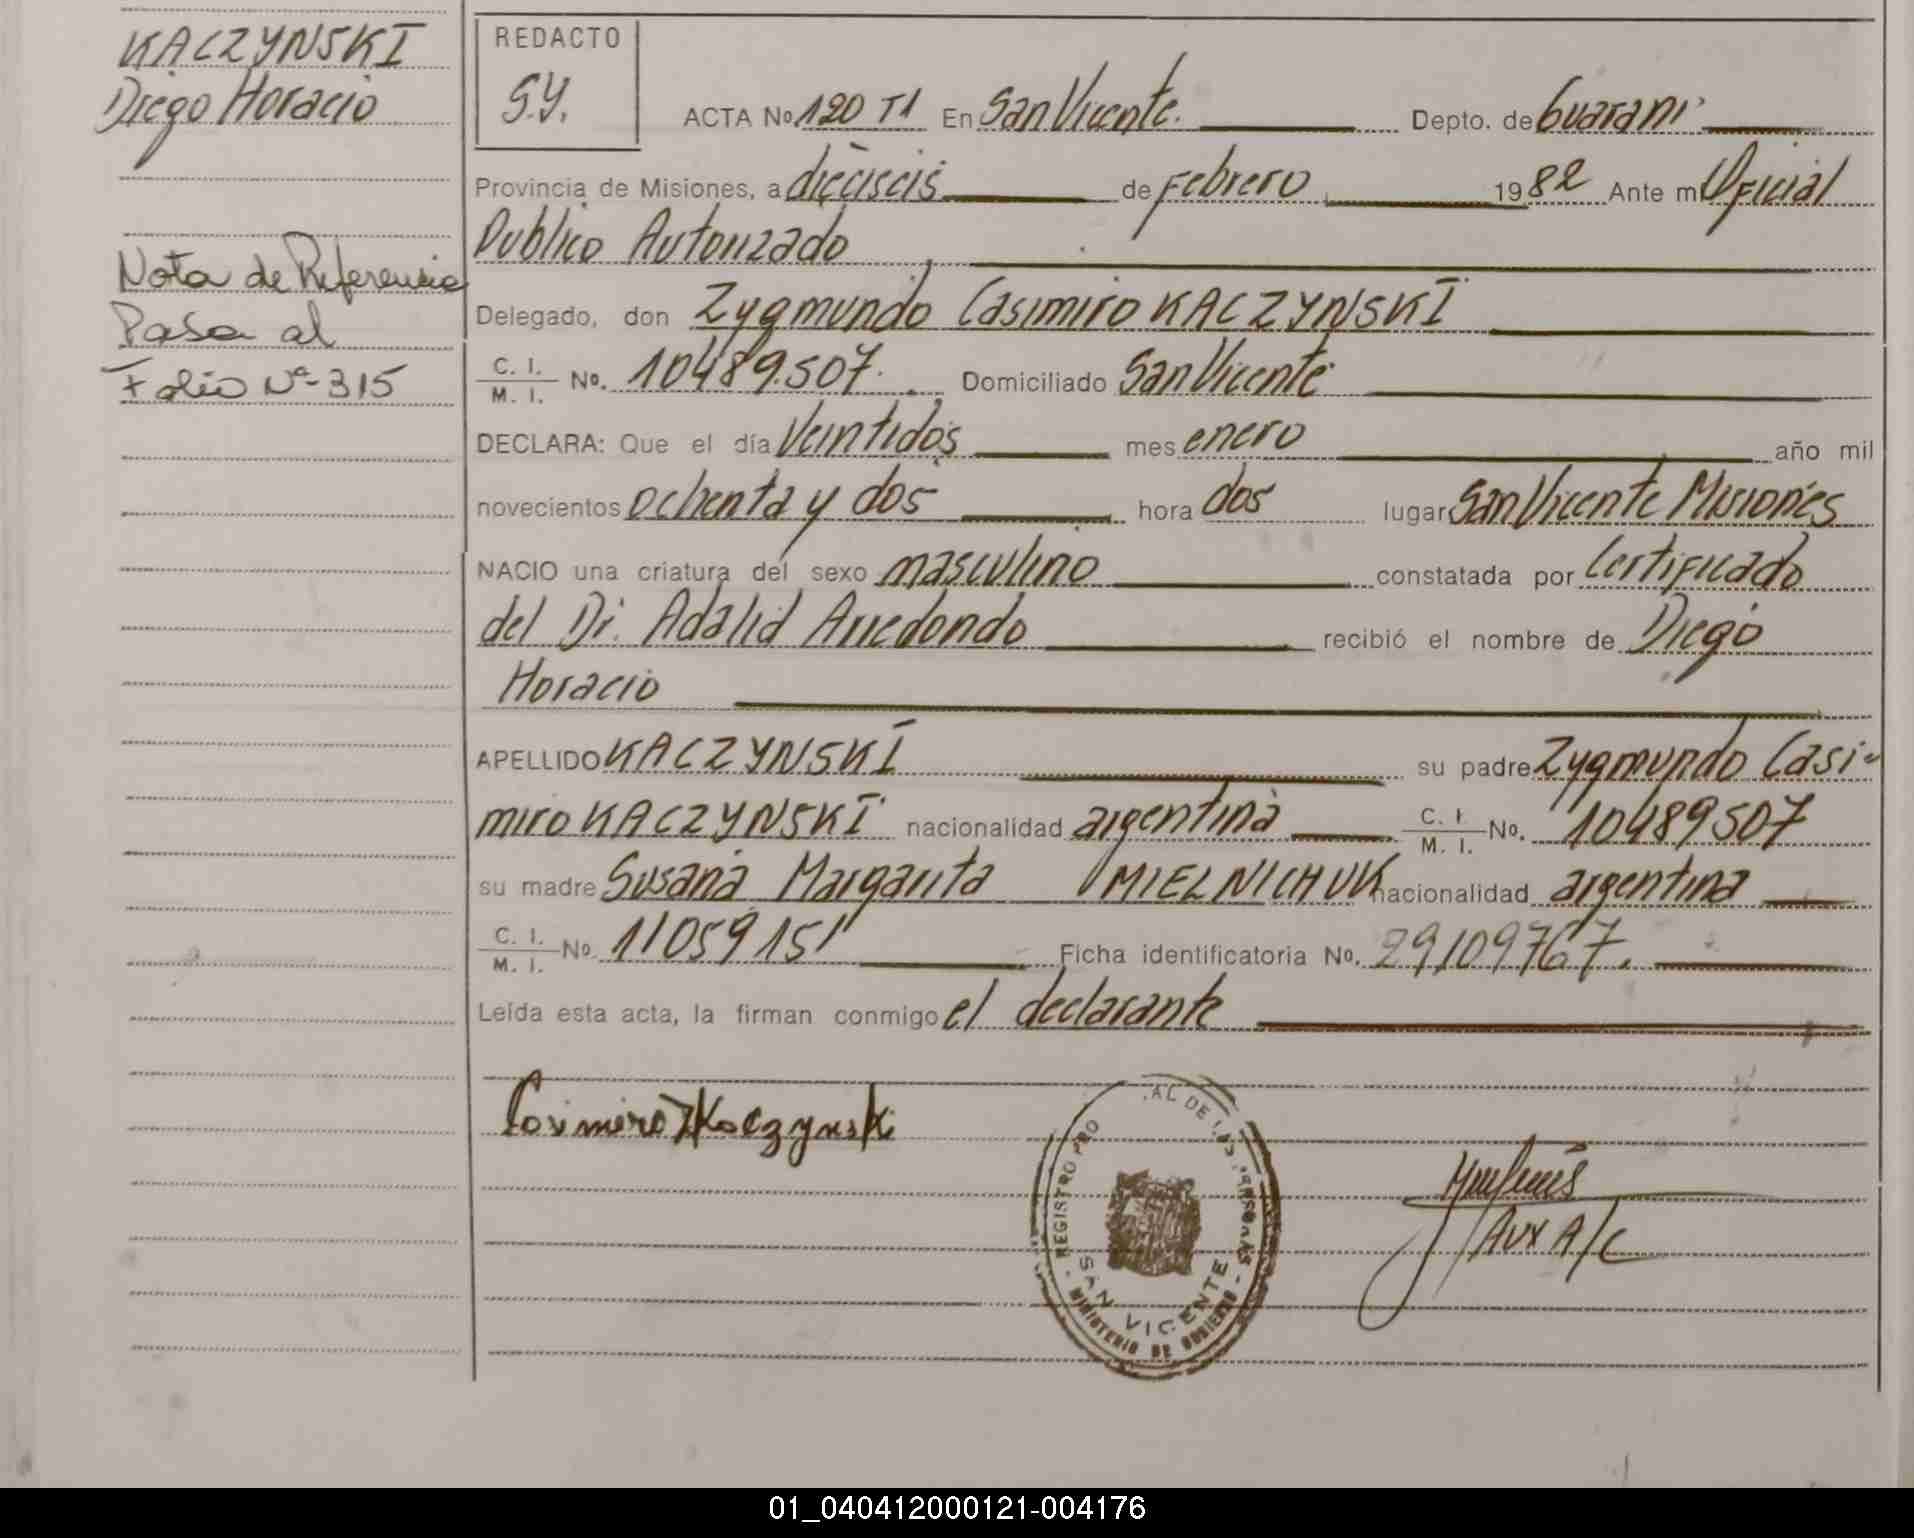 KACZYNSKI
Diego Horacio
Nota de Referencia
Pasa al
Folio Nº 315
REDACTO
S.Y.
ACTA No. 120 T1 En San Vicente. Depto. de Guaraní
Provincia de Misiones, a dieciseis de Febrero 1982 Ante mí Oficial
Publico Autorizado
Delegado, don Zygmundo Casimiro KACZYNSKI
C. I. M. I. No. 10489.507. Domiciliado San Vicente
DECLARA: Que el día Veintidós mes enero año mil
novecientos ochenta y dos hora dos lugar San Vicente Misiones
NACIO una criatura del sexo masculino constatada por Certificado
del Dr. Adalid Arredondo recibió el nombre de Diego
Horacio
APELLIDO KACZYNSKI su padre Zygmundo Casi-
miro KACZYNSKI nacionalidad argentina C. I. M. I. No. 10489507
su madre Susana Margarita MIELNICHUK nacionalidad argentina
C. I. M. I. No. 11059151 Ficha identificatoria No. 29109767.
Leída esta acta, la firman conmigo el declarante
Casimiro Z Kaczynski
REGISTRO PRO AL DE LAS PERSONAS - MINISTERIO DE GOBIERNO -
SAN VICENTE
Aux A/C
01_040412000121-004176